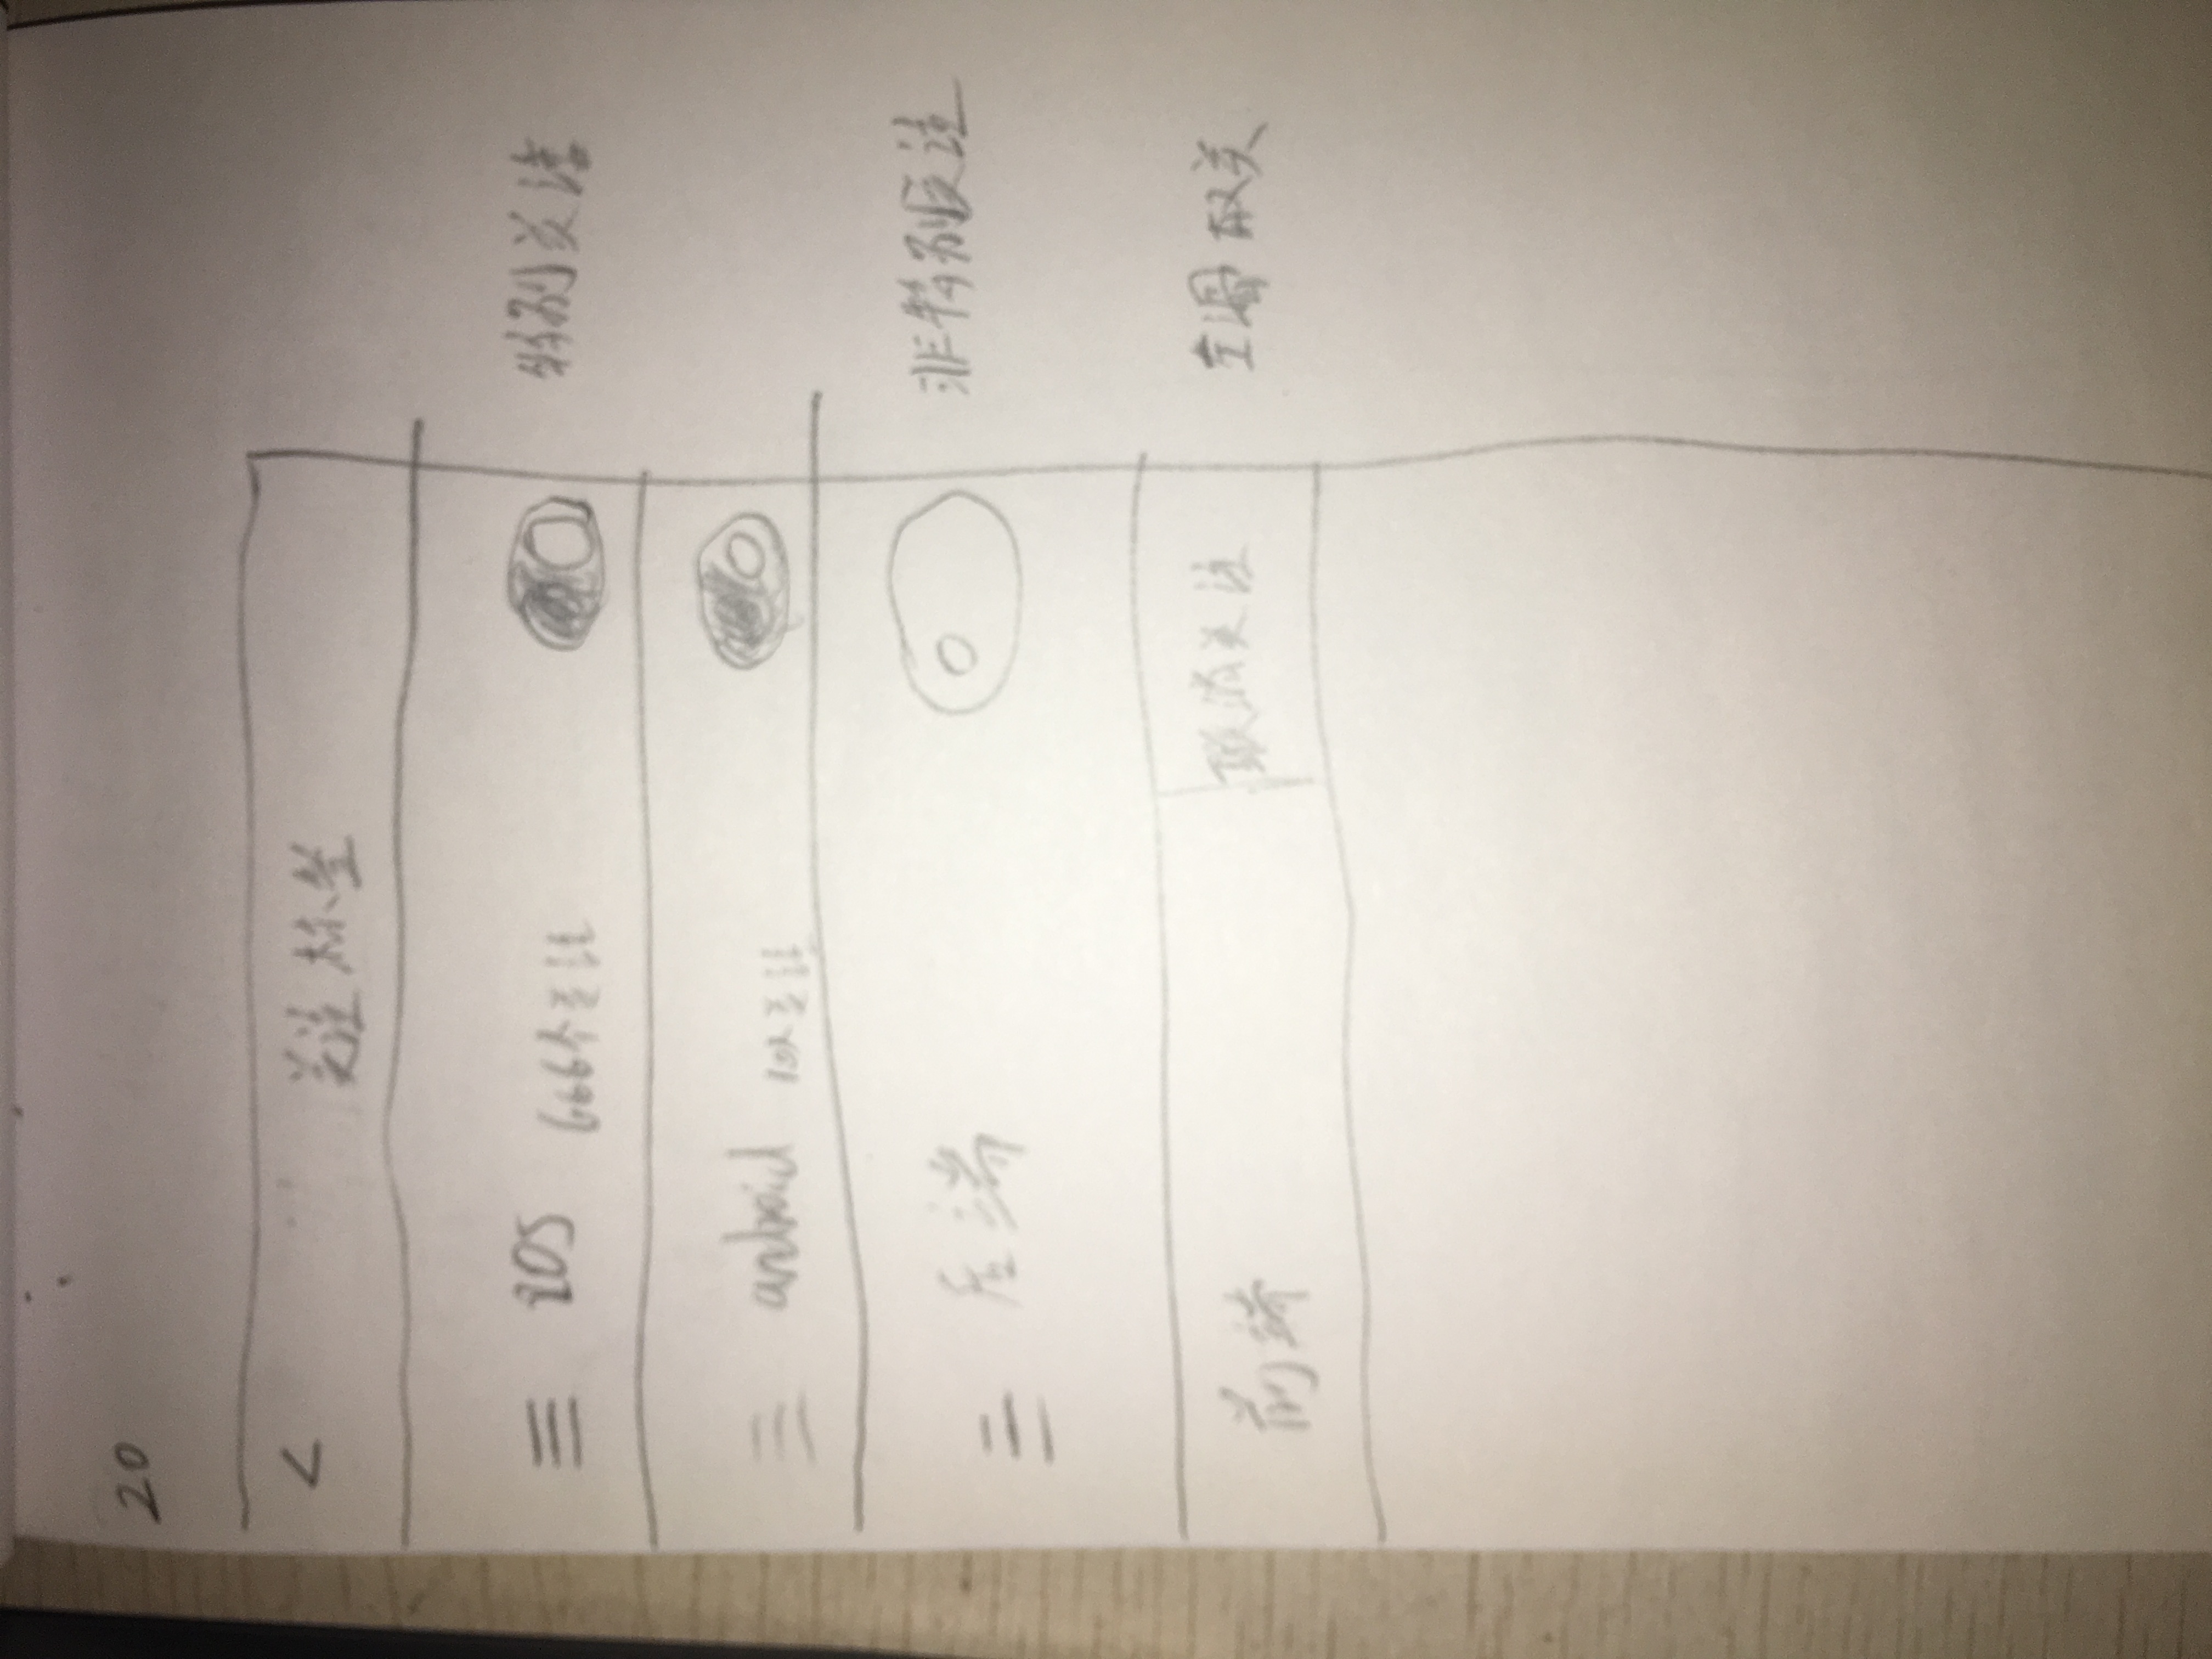 20
< 关注标签
iOS 666个关注 特别关注
android 10人关注
后端 非特别关注
前端 取消关注 左滑取关